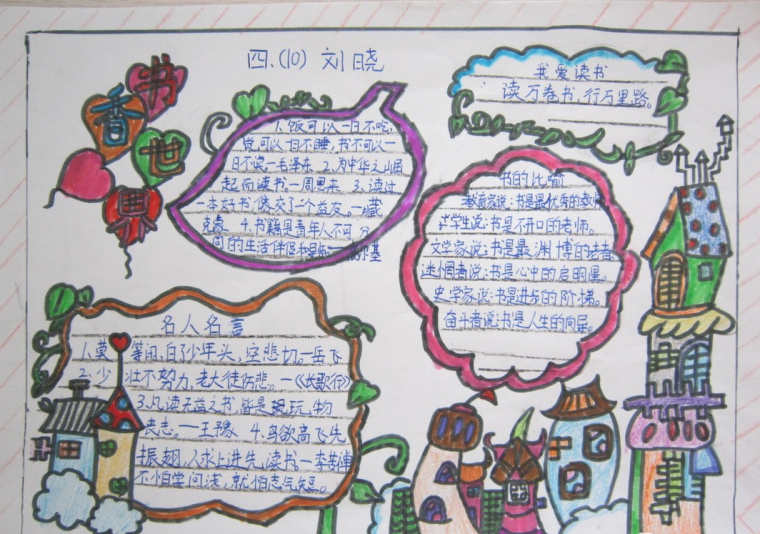 四.(10) 刘晓
书香世界
1.饭可以一日不吃,
觉可以一日不睡,书不可以一
日不读—毛泽东 2.为中华之崛
起而读书—周恩来 3.读过
一本好书,像交了一个益友。—臧
克家 4.书籍是青年人不可分
的生活伴侣和导师
我爱读书
读万卷书,行万里路。
书的比喻
教育家说:书是最优秀的教师
学生说:书是不开口的老师。
文学家说:书是最渊博的读者
迷惘者说:书是心中的启明星。
史学家说:书是进步的阶梯。
奋斗者说:书是人生的向导。
名人名言
1.莫等闲,白了少年头,空悲切。—岳飞
2.少壮不努力,老大徒伤悲。—《长歌行》
3.凡读无益之书,皆是玩物
丧志。—王豫 4.鸟欲高飞先
振翅,人求上进先读书。—李苦禅
不怕学问浅,就怕志气短。